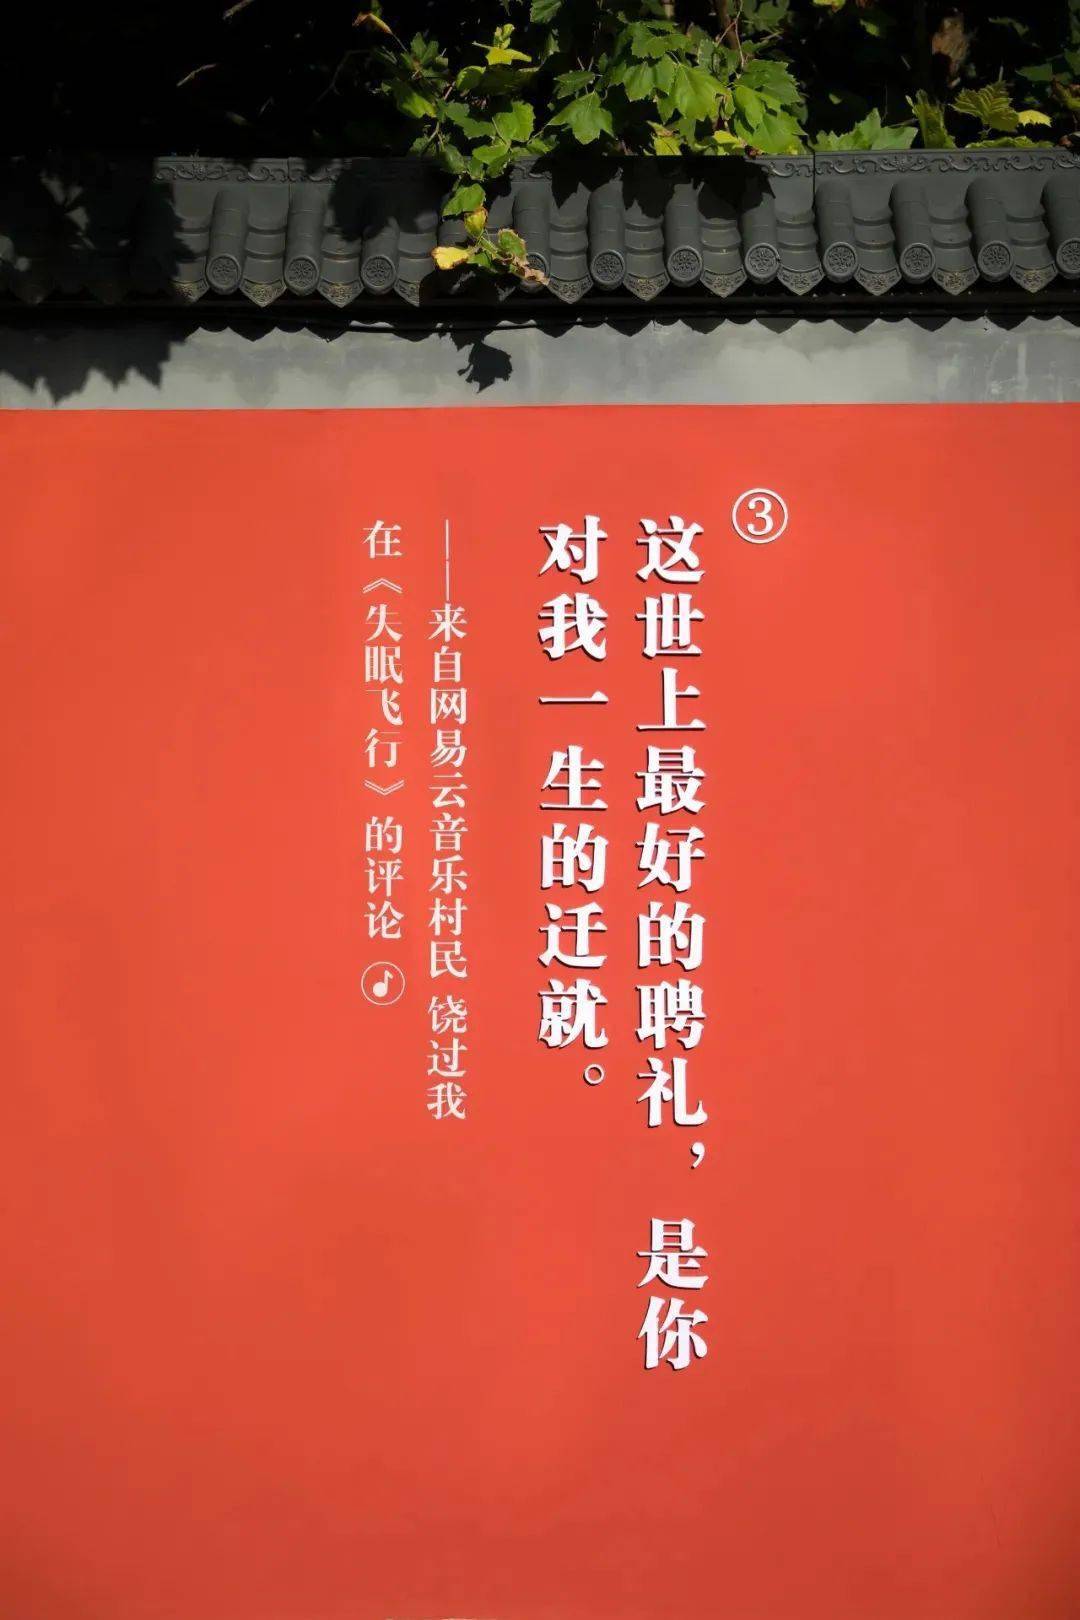 ③
这世上最好的聘礼，是你
对我一生的迁就。
——来自网易云音乐村民 饶过我
在《失眠飞行》的评论